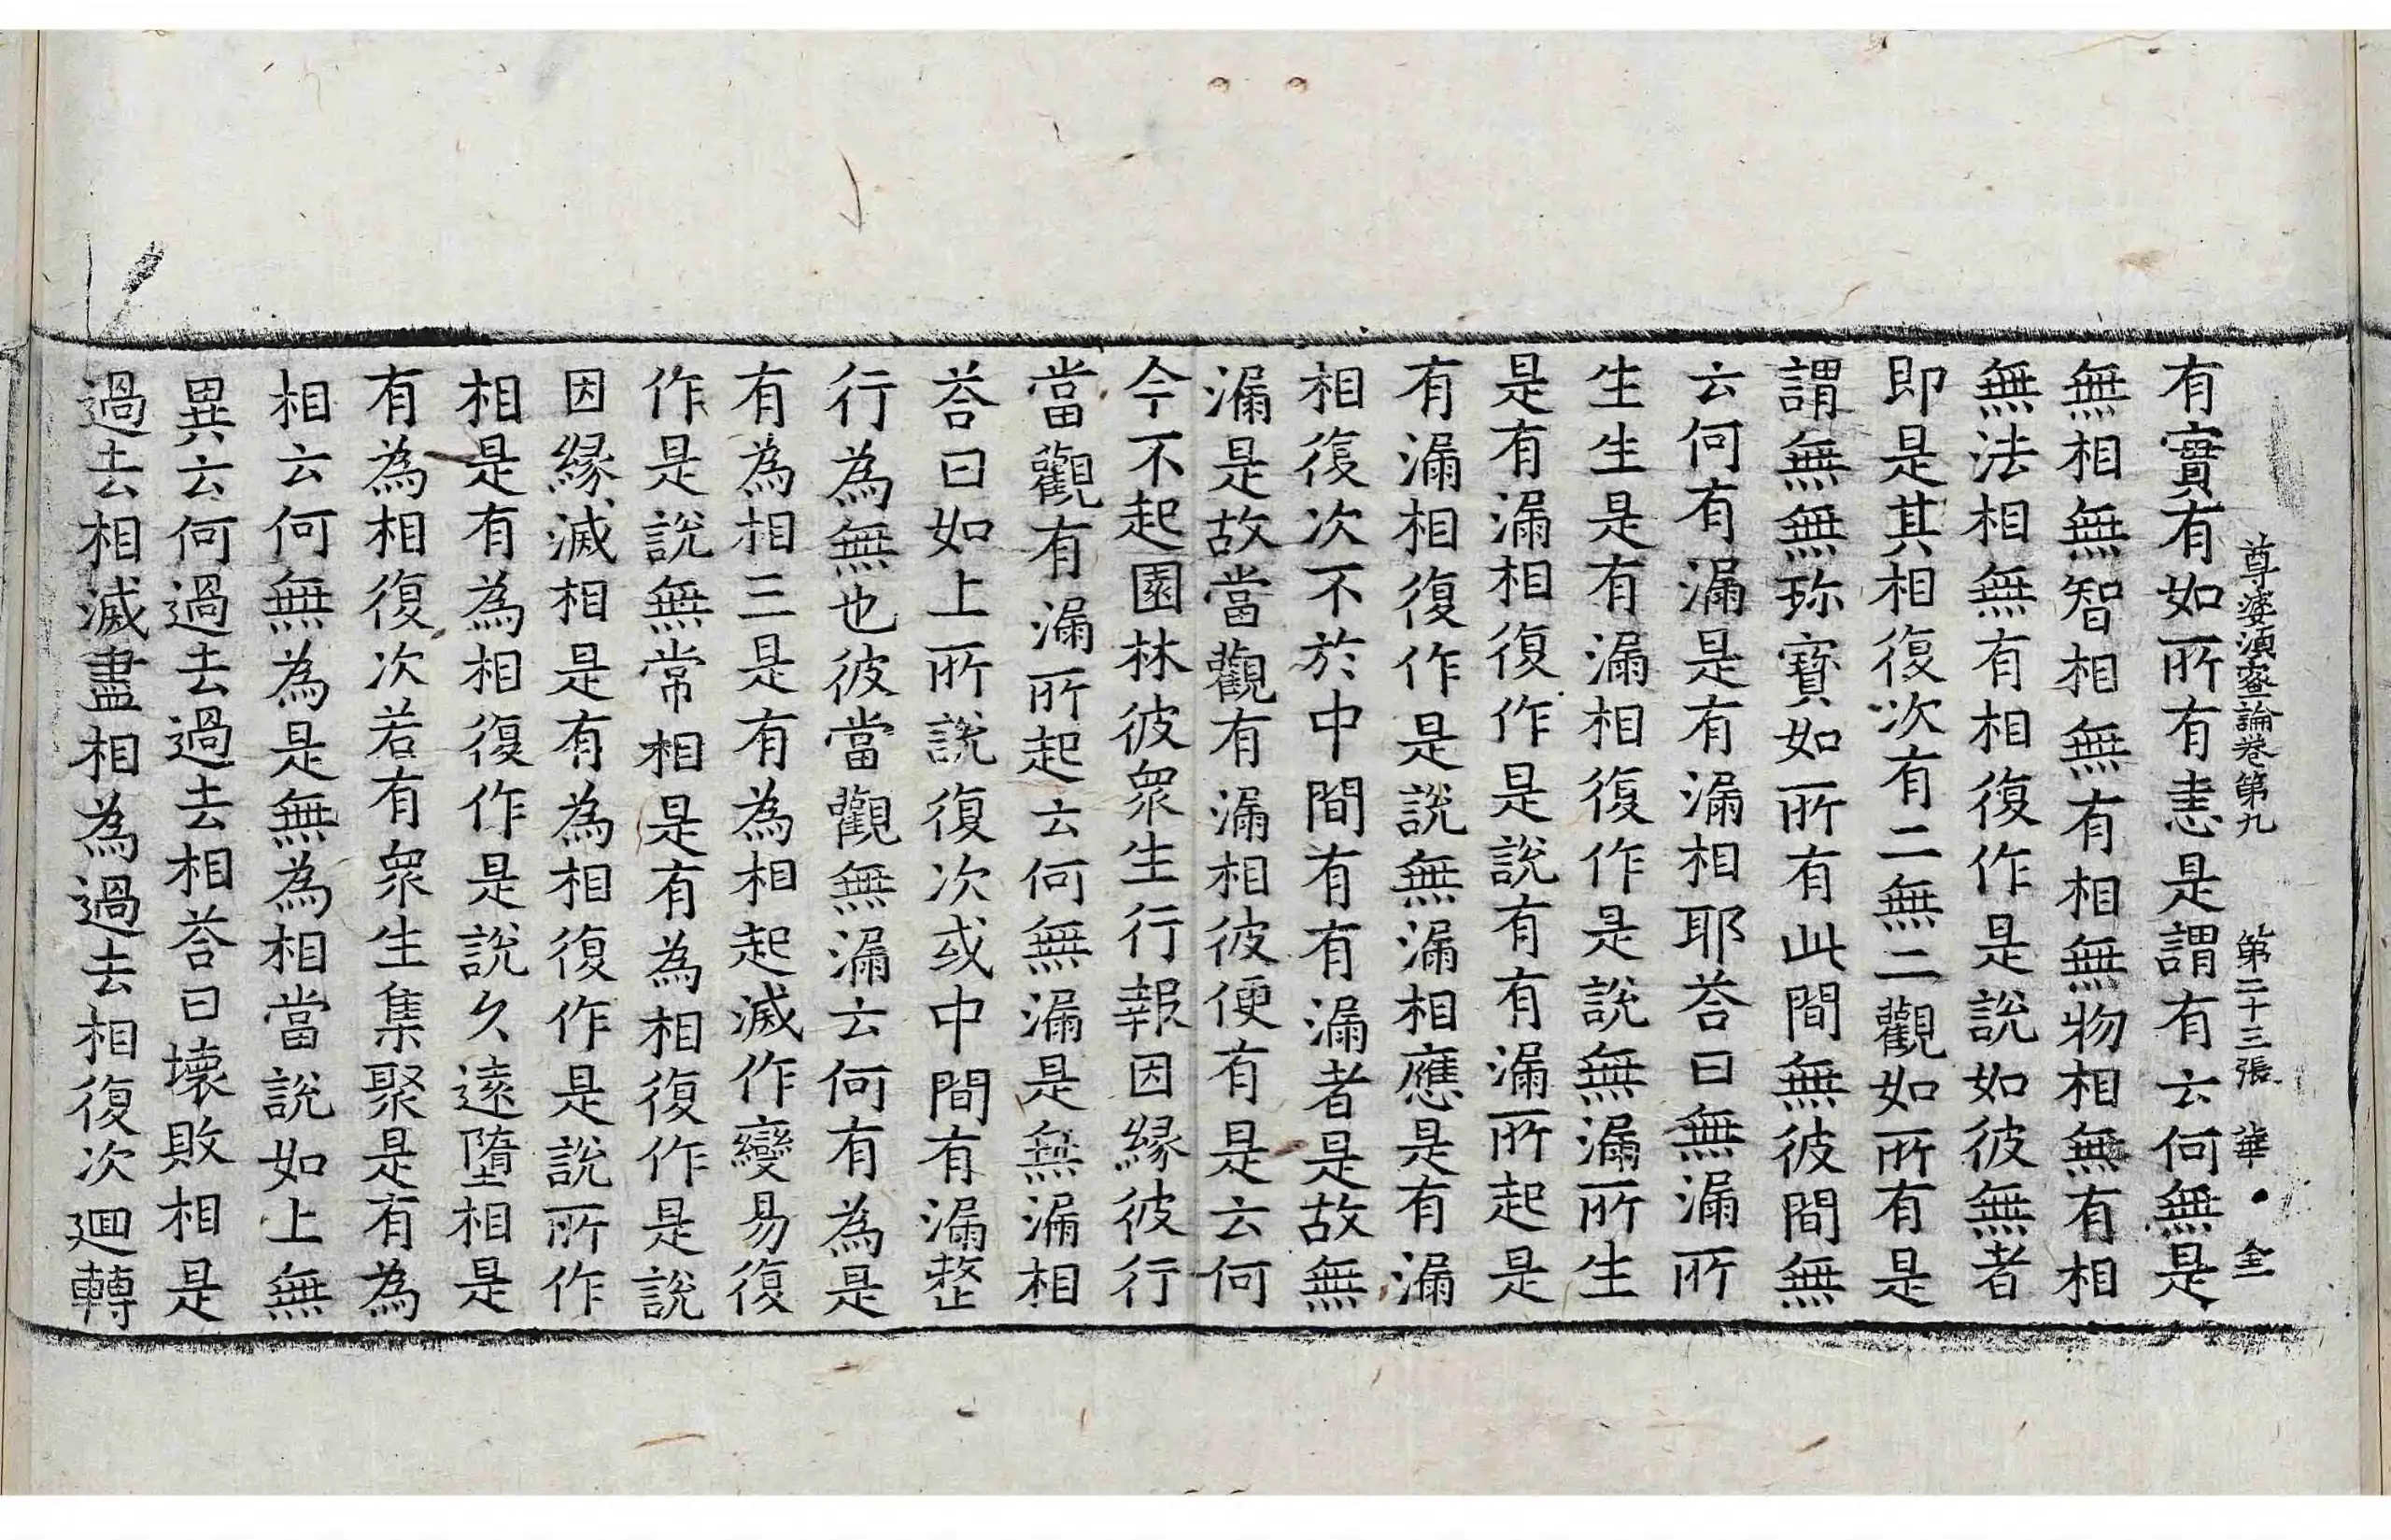 尊婆須蜜論卷第九 第二十三張 華 全
有實有如所有恚是謂有云何無是
無相無智相無有相無物相無有相
無法相無有相復作是說如彼無者
即是其相復次有二無二觀如所有是
謂無無珎寶如所有此間無彼間無
云何有漏是有漏相耶荅曰無漏所
生生是有漏相復作是說無漏所生
是有漏相復作是說有有漏所起是
有漏相復作是說無漏相應是有漏
相復次不於中間有有漏者是故無
漏是故當觀有漏相彼便有是云何
今不起園林彼衆生行報因緣彼行
當觀有漏所起云何無漏是無漏相
荅曰如上所說復次或中間有漏整
行為無也彼當觀無漏云何有為是
有為相三是有為相起滅作變易復
作是說無常相是有為相復作是說
因緣滅相是有為相復作是說所作
相是有為相復作是說久遠墮相是
有為相復次若有衆生集聚是有為
相云何無為是無為相當說如上無
異云何過去過去相荅曰壞敗相是
過去相滅盡相為過去相復次迴轉